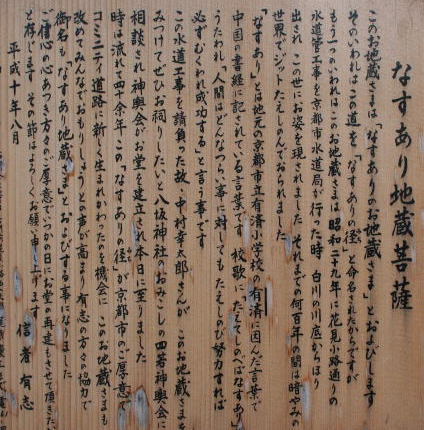 なすあり地蔵菩薩
このお地蔵さまは「なすありのお地蔵さま」とおよびします
そのいわれはこの道を「なすありの径」と命名されたからですが
もう一つのいわれはこのお地蔵さまは昭和二十九年に花見小路通りの
水道管工事を京都市水道局で行った時 白川の川底からほり
出され この世にお姿を現されました それまでの何百年の間は暗やみの
世界でジットたえしのんでおられました
「なすあり」とは地元の京都市立有済小学校の有済に因んだ言葉で
中国の書経に記されている言葉です 校歌に「たえてしのべばなすあり」
うたわれ 人間はどんなつらい事に対してもたえしのび努力すれば
必ずむくわれ成功する」と言う事です
この水道工事を請負った故 中村幸太郎さんが このお地蔵さまを
みつけてぜひお祠りしたいと八坂神社のおみこしの四若神輿会に
相談され神輿会がお堂を建立され本日に至りました
時は流れて四十余年この「なすありの径」が京都市のご厚意で
コミニティ道路に新しく生まれかわったのを機会に このお地蔵さまも
改めてみんなでおもりしようとの声が高まり有志の方々の協力で
御名も「なすあり地蔵さま」とおよびする事になりました
ご信心の心あつき方々のご厚意でいつか日にお堂の再建もさせて頂きた
と存じます その節はよろしくお願い申し上げます
平成十年八月
信者有志